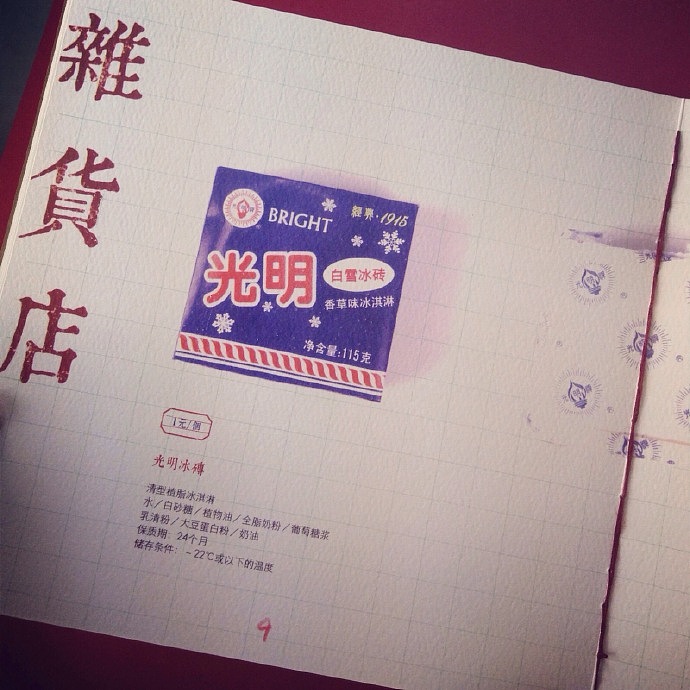 雜貨店
BRIGHT
經典·1915
光明
白雪冰砖
香草味冰淇淋
净含量:115克
1元/個
光明冰磚
清型植脂冰淇淋
水/白砂糖/植物油/全脂奶粉/葡萄糖浆
乳清粉/大豆蛋白粉/奶油
保质期: 24个月
储存条件: -22℃或以下的温度
9